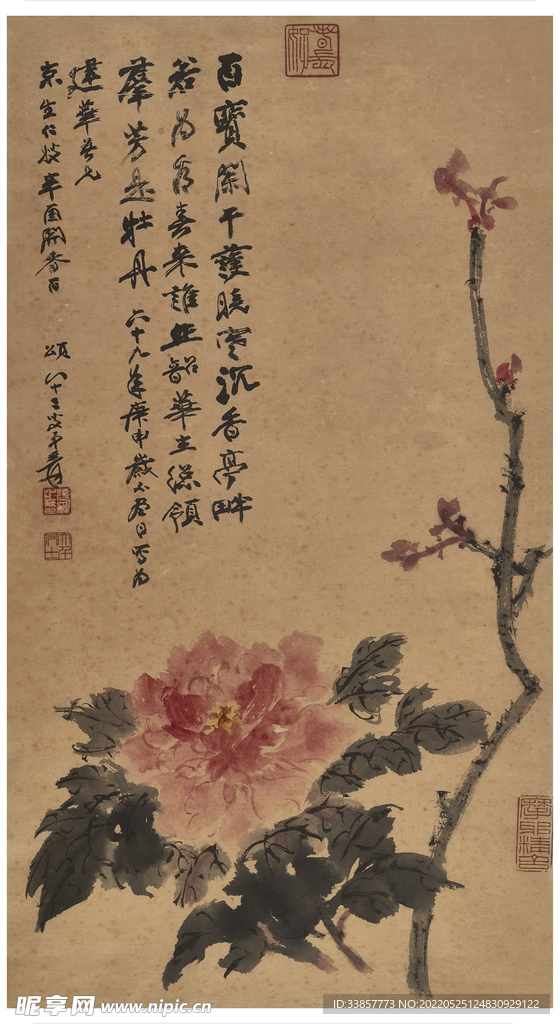 百寶闌干護曉寒沉香亭畔
若為看春來誰作韶華主總領
羣芳是牡丹 六十九年庚申歲日寫為
建華吾兄
京生仁嫂 辛酉開春百頌 八十三叟爰
昵享网 www.nipic.cn
ID:33857773 NO:20220525124830929122